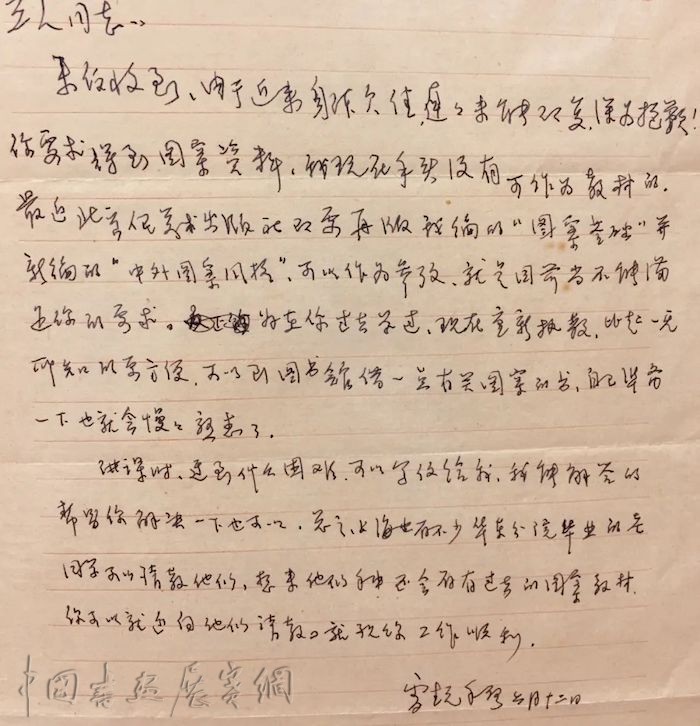 同志：
来信收到、由于近来身体欠佳，迟迟未能即复，深为抱歉！
你要求得到图案资料，我现在手头没有可作为教材的。
最近北京人民美术出版社即要再版我编的“图案基础”并
新编的“中外图案风格”，可以作为参考、就是目前尚不能满
足你的要求。好在你过去学过，现在重新执教，比起一无
所知的要方便，可以到图书馆借一些有关图案的书，自己准备
一下也就会慢慢熟悉了。
讲课时，遇到什么困难，可以写信给我，我能解答的
帮助你解决一下也可以。总之，上海也有不少华东分院毕业的老
同学可以请教他们，想来他们手中还会存有过去的图案教材，
你可以就近向他们请教。就祝你工作顺利。
月十二日
中国书画展赛网